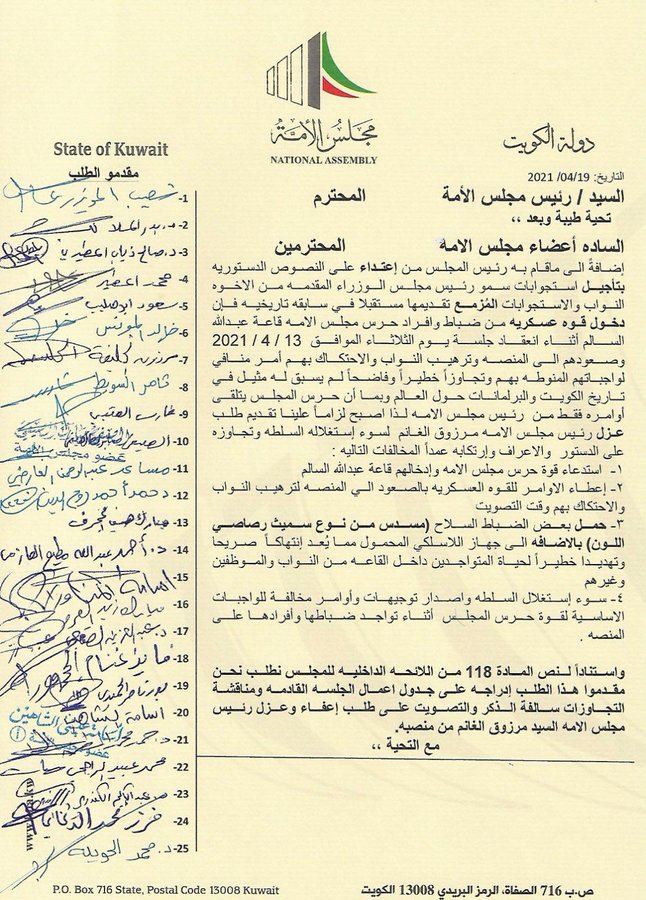 مجلس الأمة
NATIONAL ASSEMBLY
State of Kuwait
دولة الكويت
التاريخ: 19/ 04/ 2021
السيد / رئيس مجلس الأمة المحترم
تحية طيبة وبعد ،،
الساده أعضاء مجلس الامه المحترمين
إضافةً الى ماقام به رئيس المجلس من إعتداء على النصوص الدستوريه
بتأجيل استجوابات سمو رئيس مجلس الوزراء المقدمه من الاخوه
النواب والاستجوابات المُزمع تقديمها مستقبلا في سابقه تاريخيه فإن
دخول قوه عسكريه من ضباط وافراد حرس مجلس الامه قاعة عبدالله
السالم أثناء انعقاد جلسة يوم الثلاثاء الموافق 13 / 4 / 2021
وصعودهم الى المنصه وترهيب النواب والاحتكاك بهم أمر منافي
لواجباتهم المنوطه بهم وتجاوزاً خطيراً وفاضحاً لم يسبق له مثيل في
تاريخ الكويت والبرلمانات حول العالم وبما أن حرس المجلس يتلقى
أوامره فقط من رئيس مجلس الامه لذا اصبح لزاماً علينا تقديم طلب
عزل رئيس مجلس الامه مرزوق الغانم لسوء إستغلاله السلطه وتجاوزه
على الدستور والاعراف وإرتكابه عمداً المخالفات التاليه :
١- استدعاء قوة حرس مجلس الامه وإدخالهم قاعة عبدالله السالم
٢- إعطاء الاوامر للقوه العسكريه بالصعود الي المنصه لترهيب النواب
والاحتكاك بهم وقت التصويت
٣- حمل بعض الضباط السلاح (مسدس من نوع سميث رصاصي
اللون) بالاضافه الى جهاز اللاسلكي المحمول مما يُعد إنتهاكاً صريحا
وتهديدا خطيراً لحياة المتواجدين داخل القاعه من النواب والموظفين
وغيرهم
٤- سوء إستغلال السلطه واصدار توجيهات وأوامر مخالفة للواجبات
الاساسية لقوة حرس المجلس أثناء تواجد ضباطها وأفرادها على
المنصه .
واستناداً لنص المادة 118 من اللائحه الداخليه للمجلس نطلب نحن
مقدموا هذا الطلب إدراجه على جدول اعمال الجلسه القادمه ومناقشة
التجاوزات سالفة الذكر والتصويت على طلب إعفاء وعزل رئيس
مجلس الامه السيد مرزوق الغانم من منصبه.
مع التحية ،،
مقدمو الطلب
1-
2- د. بدر الملا
3- د. صالح ذياب المطيري
4- محمد المطير
5- سعود ابوصليب
6- خالد المونس
7- مرزوق الخليفة
8- ثامر السويط
9- فارس العتيبي
10- الصيفي
عضو مجلس الأمة
11- مساعد عبدالرحمن العارضي
12- د. حمد
13- مبارك
14- د. أحمد عبدالله مطيع العازمي
15- أسامة المناور
16- مبارك
17- د. عبدالعزيز
18- فايز غنام الجمهور
19-
20- أسامة الشاهين
21- د. حمد
22- محمد عبيد الراجحي
23- عبدالكريم الكندري
24- فرز محمد الديحاني
25- د. محمد الحويلة
P.O. Box 716 State, Postal Code 13008 Kuwait
ص.ب 716 الصفاة، الرمز البريدي 13008 الكويت